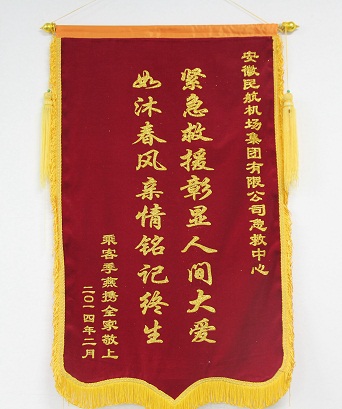 安徽民航机场集团有限公司急救中心
紧急救援彰显人间大爱
如沐春风亲情铭记终生
乘客季燕携全家敬上
二〇一四年二月